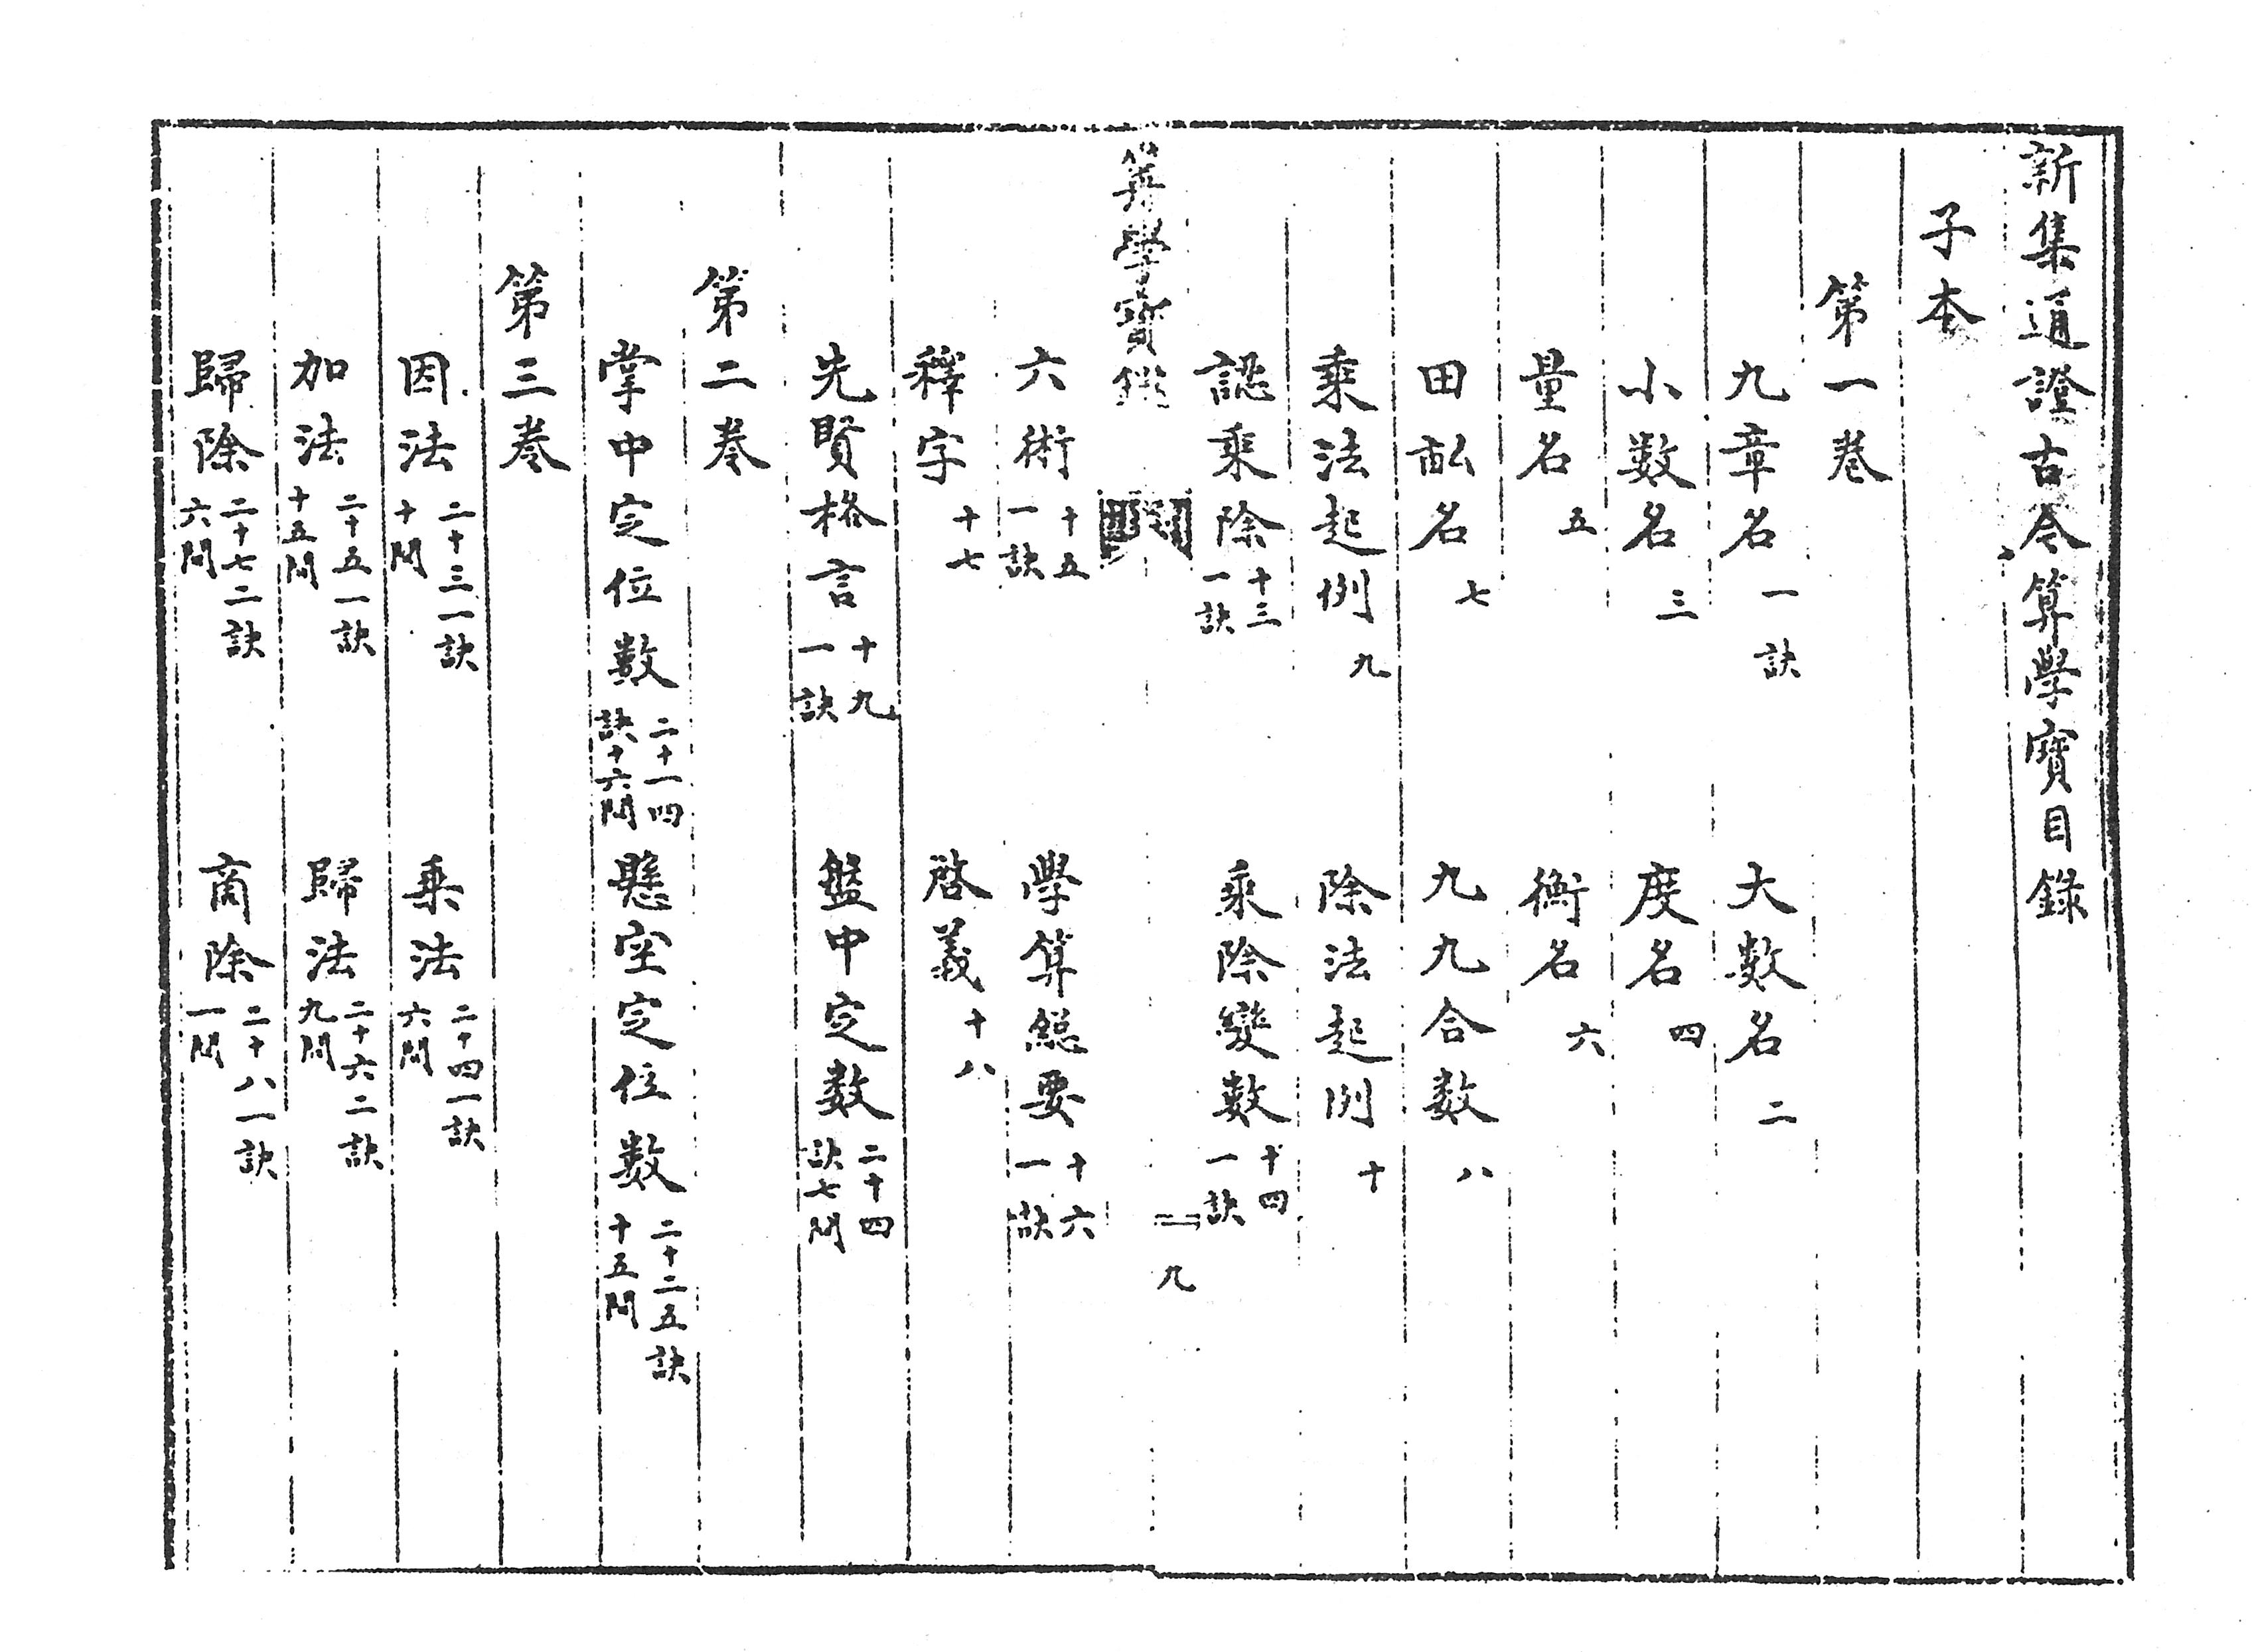 新集通證古今算學寶目錄
子本
第一卷
九章名 一訣 大数名 二
小数名 三 度名 四
量名 五 衡名 六
田畝名 七 九九合数 八
乘法起例 九 除法起例 十
認乘除 十三 一訣 乘除變數 十四 一訣
算學寶鑑 九
六術 十五 一訣 學算總要 十六 一訣
釋字 十七 啓義 十八
先賢格言 十九 一訣 盤中定数 二十四 訣七問
第二卷
掌中定位數 二十一四 訣十六問 懸空定位数 二十二五訣 十五問
第三卷
因法 二十三一訣 十問 乘法 二十四一訣 六問
加法 二十五一訣 十五問 歸法 二十六二訣 九問
歸除 二十七二訣 六問 商除 二十八一訣 一問